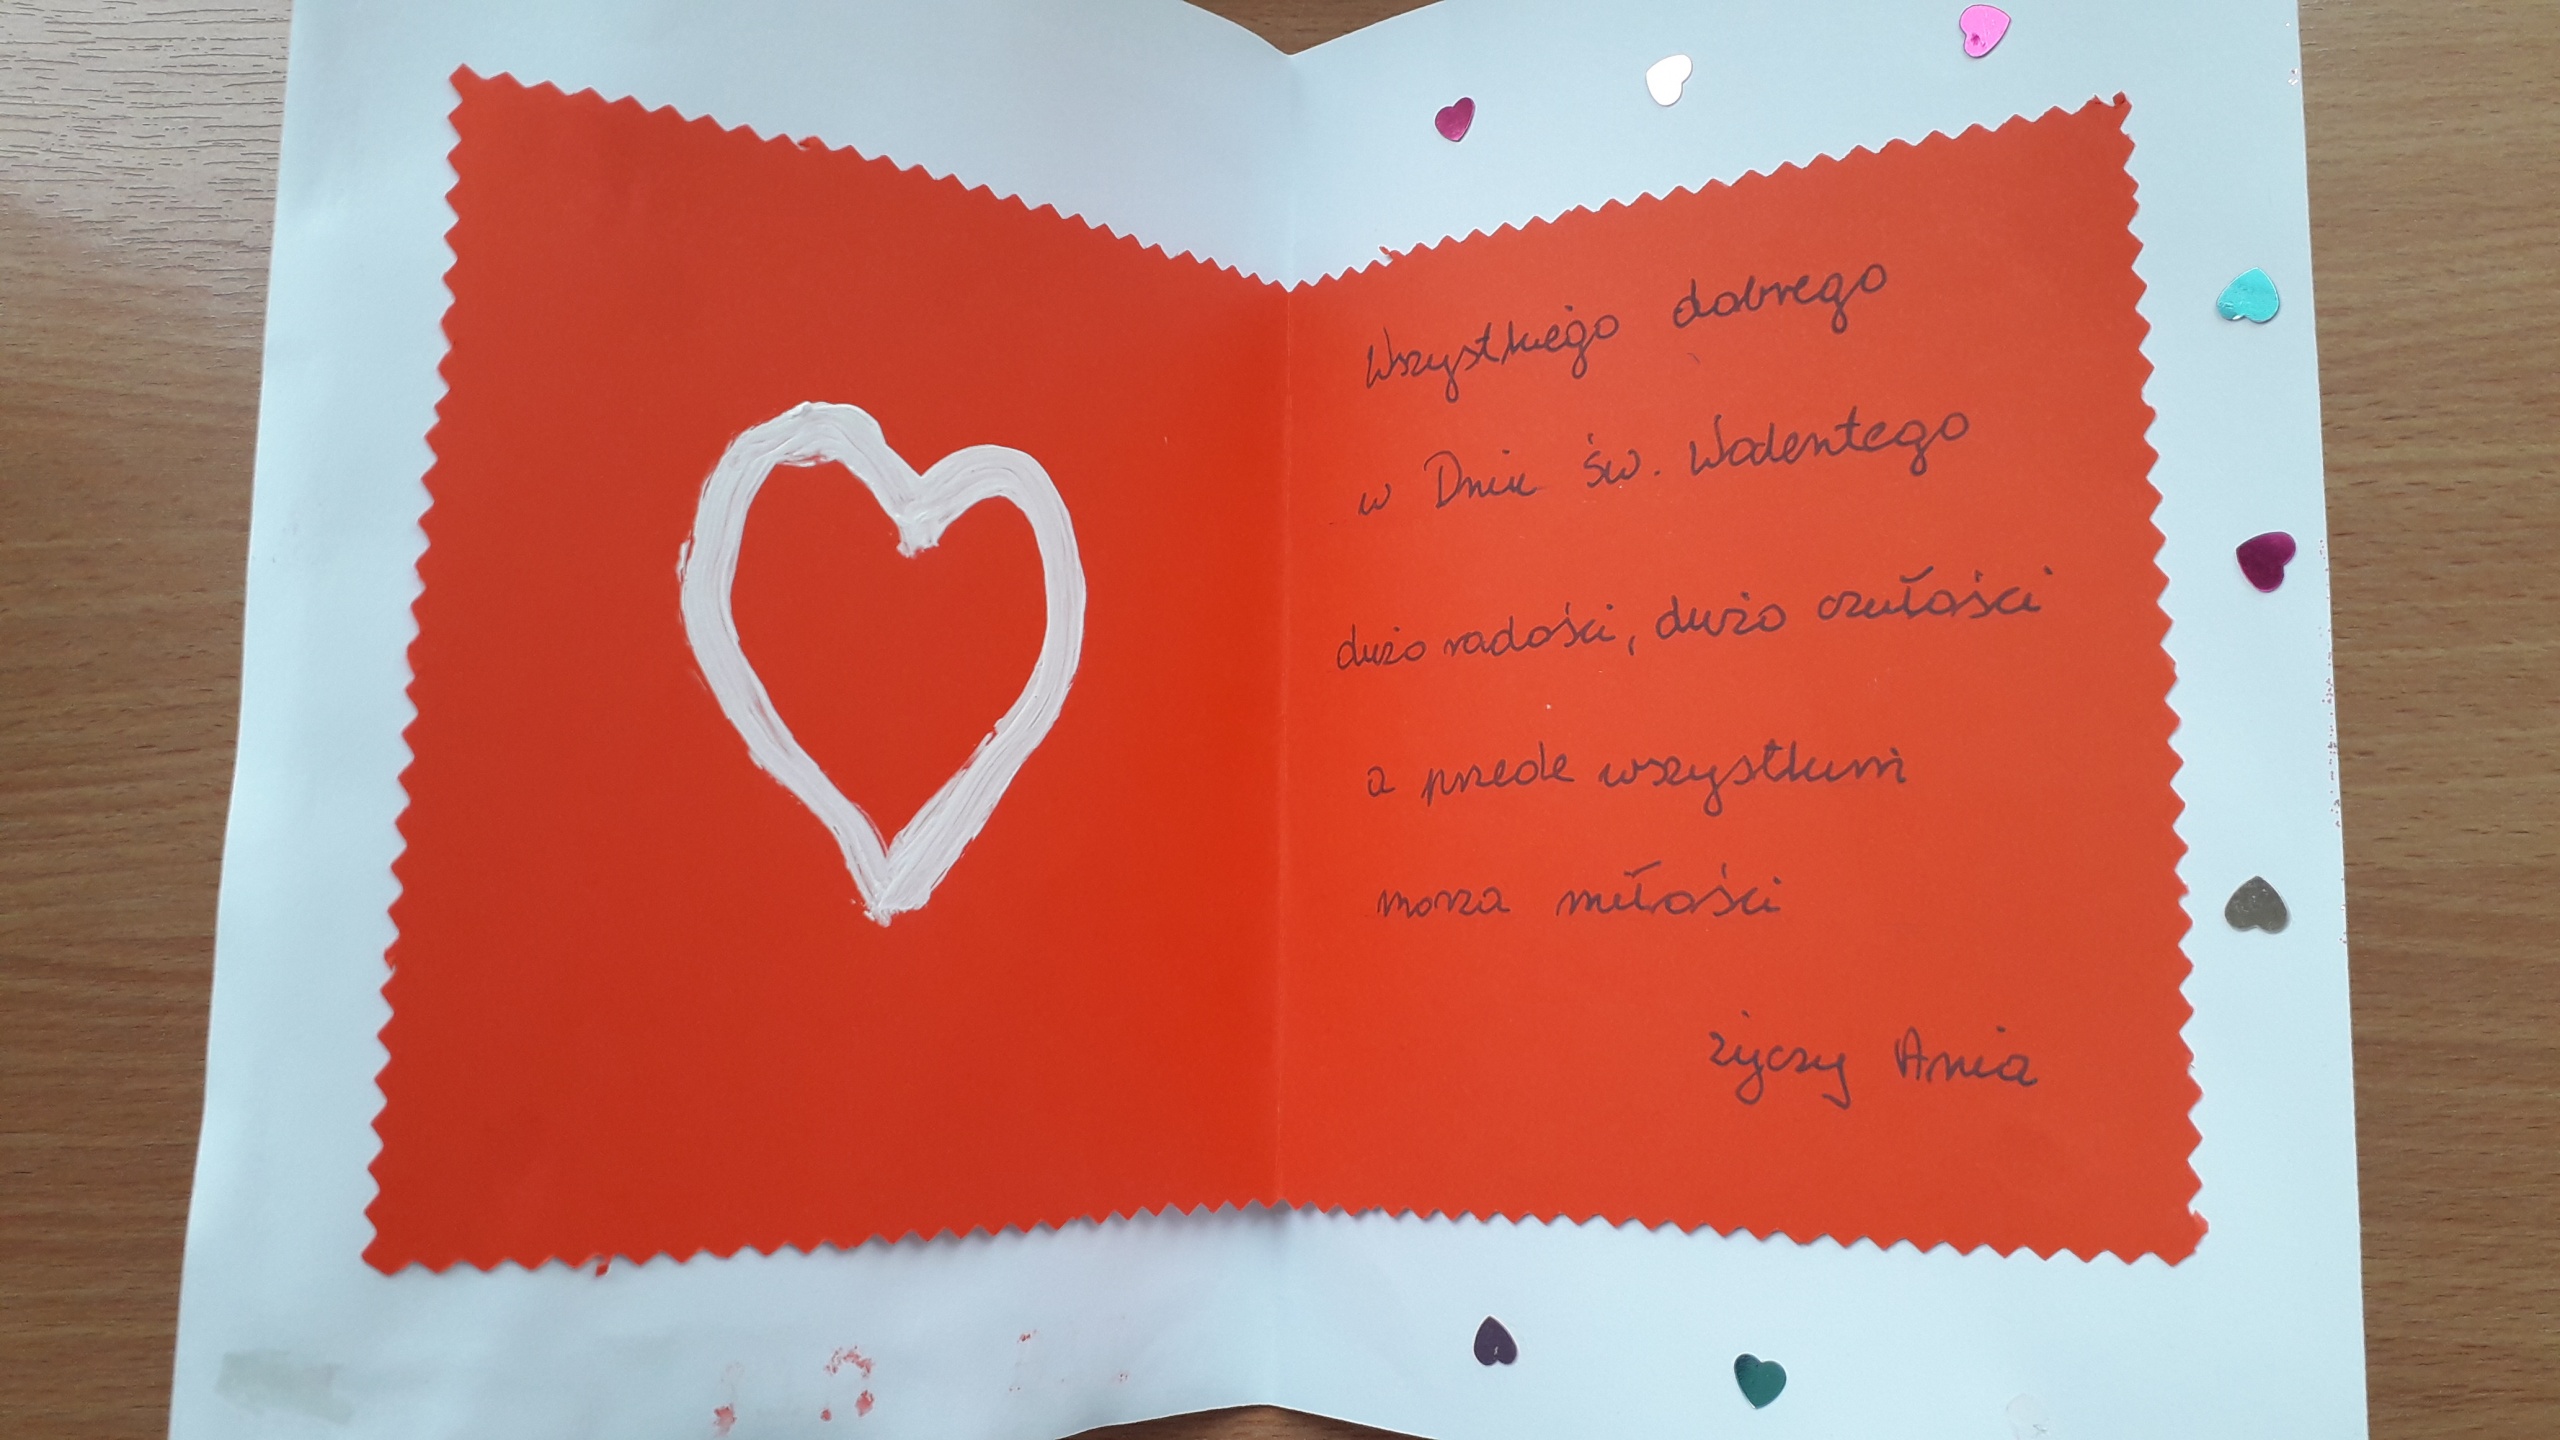 Wszystkiego dobrego
w Dniu św. Walentego
dużo radości, dużo czułości
a przede wszystkim
morza miłości
życzy Ania